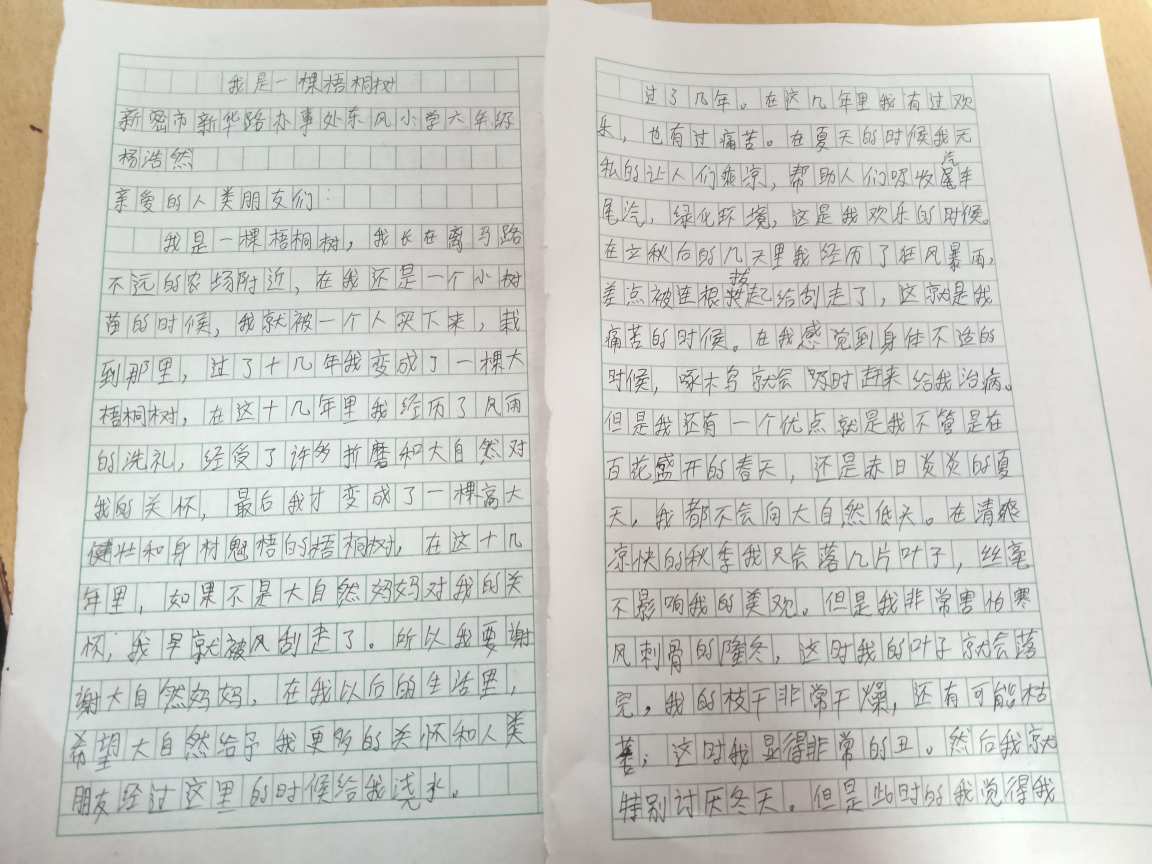 我是一棵梧桐树
新密市新华路办事处东风小学六年级
杨浩然
亲爱的人类朋友们：
我是一棵梧桐树，我长在离马路
不远的农场附近，在我还是一个小树
苗的时候，我就被一个人买下来，栽
到那里，过了十几年我变成了一棵大
梧桐树，在这十几年里我经历了风雨
的洗礼，经受了许多折磨和大自然对
我的关怀，最后我才变成了一棵高大
健壮和身材魁梧的梧桐树，在这十几
年里，如果不是大自然妈妈对我的关
怀，我早就被风刮走了。所以我要谢
谢大自然妈妈，在我以后的生活里，
希望大自然给予我更多的关怀和人类
朋友经过这里的时候给我浇水。
过了几年。在这几年里我有过欢
乐，也有过痛苦。在夏天的时候我无
私的让人们乘凉，帮助人们吸收汽车
尾汽，绿化环境，这是我欢乐的时候。
在立秋后的几天里我经历了狂风暴雨，
差点被连根拔起给刮走了，这就是我
痛苦的时候。在我感觉到身体不适的
时候，啄木鸟就会及时赶来给我治病。
但是我还有一个优点就是我不管是在
百花盛开的春天，还是赤日炎炎的夏
天，我都不会向大自然低头。在清爽
凉快的秋季我只会落几片叶子，丝毫
不影响我的美观。但是我非常害怕寒
风刺骨的隆冬，这时我的叶子就会落
完，我的枝干非常干燥，还有可能枯
萎，这时我显得非常的丑。然后我就
特别讨厌冬天。但是此时的我觉得我